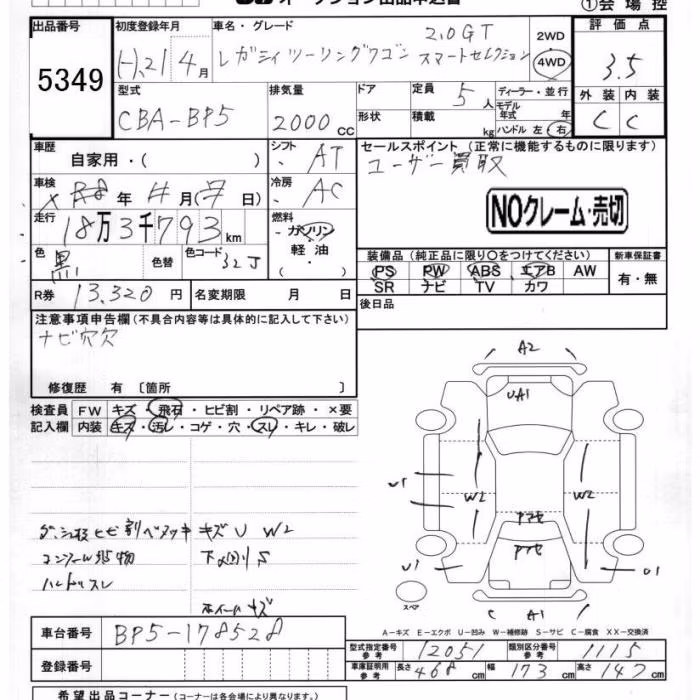 オークション出品申込書
①会場控
出品番号 5349
初度登録年月 H.21 4月
車名・グレード 2.0GT
レガシィツーリングワゴン スマートセレクション
2WD
4WD
評価点 3.5
外装 内装
C C
型式 CBA-BP5
排気量 2000 cc
ドア
形状
定員 5人
積載 kg
ディーラー・並行
モデル年式 年
ハンドル 左・右
車歴 自家用・( )
シフト AT
セールスポイント(正常に機能するものに限ります)
ユーザー買取
車検 年 月( 日)
冷房 AC
NOクレーム・売切
走行 18万3千793km
燃料 ガソリン
軽油
・( )
色 黒
色替
色コード 32J
装備品(純正品に限り○をつけてください)
PS PW ABS エアB AW
SR ナビ TV カワ
新車保証書
有・無
R券 13,320円
名変期限 月 日
後日品
注意事項申告欄(不具合内容等は具体的に記入して下さい)
ナビ穴欠
修復歴 有〔箇所 〕
検査員 FW キズ・飛石・ヒビ割・リペア跡・×要
記入欄 内装 キズ・汚レ・コゲ・穴・スレ・キレ・破レ
A2
UA1
U1
W2
W2
アマセ
アマセ
U1
U1
スペア
A1
ヒビ割 キズ U W2
ハンドルスレ
ホイールキズ
A-キズ E-エクボ U-凹み W-補修跡 S-サビ C-腐食 XX-交換済
車台番号 BP5-178528
登録番号
型式指定番号 参考 12051
類別区分番号 参考 1115
車庫証明用 参考 長さ 468cm 幅 173cm 高さ 147cm
希望出品コーナー(コーナーは各会場により異なります。)